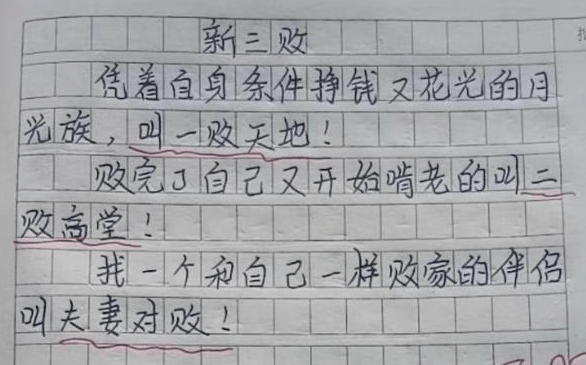 新三败
凭着自身条件挣钱又花光的月
光族，叫一败天地！
败完了自己又开始啃老的叫二
败高堂！
找一个和自己一样败家的伴侣
叫夫妻对败！